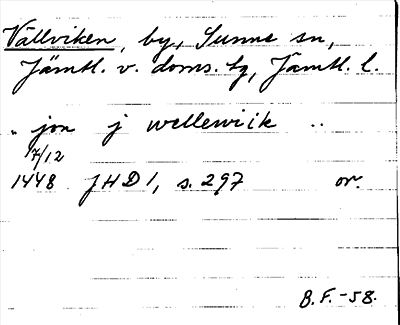 Vällviken, by, Sunne sn,
Jämtl. v. doms. tg, Jämtl. l.
.. jon j wellewiik ..
7/12
1448 JHD 1, s. 297 or.
B.F.-58.